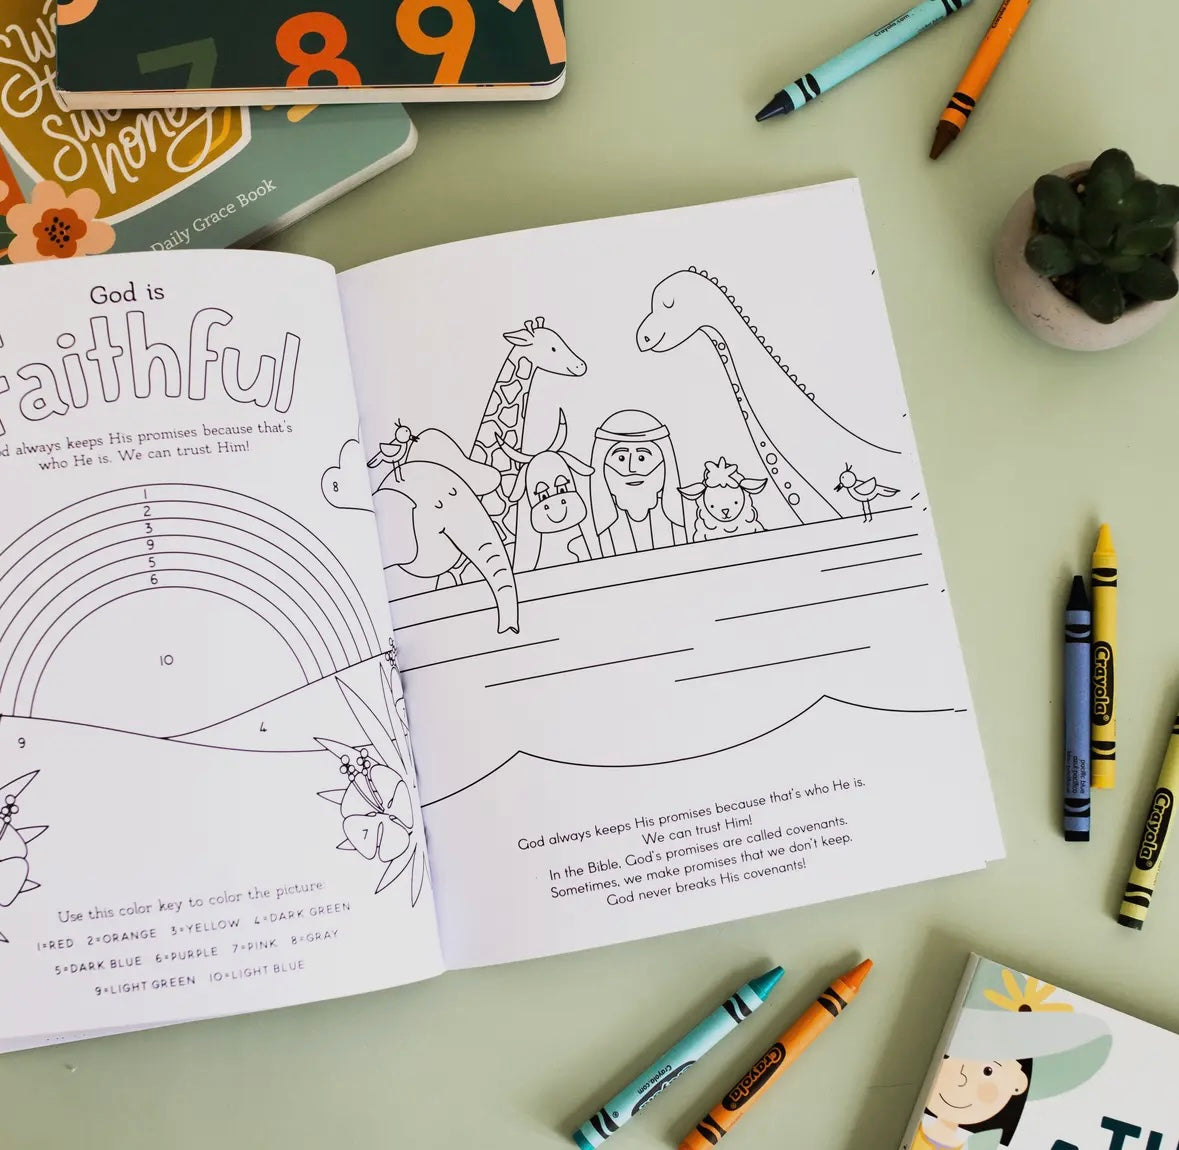 7 8 9 1
Sweet
Sweet
honey
Daily Grace Book
God is
faithful
God always keeps His promises because that's
who He is. We can trust Him!
1
2
3
9
5
6
10
8
4
9
7
Use this color key to color the picture:
1=RED 2=ORANGE 3=YELLOW 4=DARK GREEN
5=DARK BLUE 6=PURPLE 7=PINK 8=GRAY
9=LIGHT GREEN 10=LIGHT BLUE
God always keeps His promises because that's who He is.
We can trust Him!
In the Bible, God's promises are called covenants.
Sometimes, we make promises that we don't keep.
God never breaks His covenants!
Crayola.com
Crayola
pacific blue
Crayola
Crayola.com
Crayola
Crayola